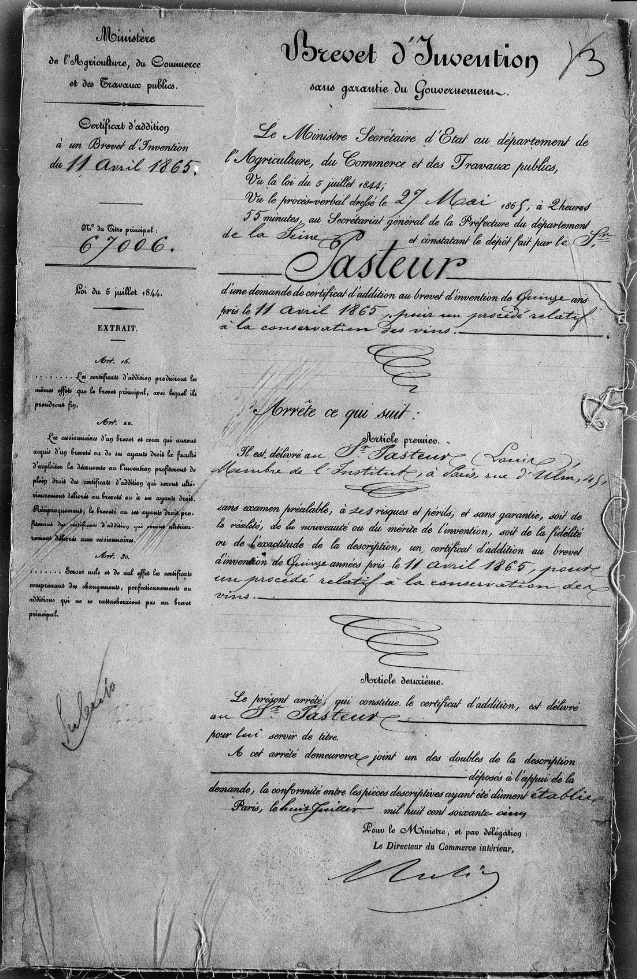 Ministère
de l'Agriculture, du Commerce
et des Travaux publics.
Certificat d'addition
à un Brevet d'Invention
du 11 avril 1865.
N.º du Titre principal :
67006.
Loi du 5 juillet 1844.
EXTRAIT.
Art. 16.
........ Les certificats d'addition produiront les
mêmes effets que le brevet principal, avec lequel ils
prendront fin.
Art. 22.
Les cessionnaires d'un brevet et ceux qui auront
acquis d'un breveté ou de ses ayants droit la faculté
d'exploiter la découverte ou l'invention profiteront de
plein droit des certificats d'addition qui seront ulté-
rieurement délivrés au breveté ou à ses ayants droit.
Réciproquement, le breveté ou ses ayants droit pro-
fiteront des certificats d'addition qui seront ultérieu-
rement délivrés aux cessionnaires.
Art. 30.
........ Seront nuls et de nul effet les certificats
comprenant des changements, perfectionnements ou
additions qui ne se rattacheraient pas au brevet
principal.
Brevet d'Invention
sans garantie du Gouvernement.
Le Ministre Secrétaire d'Etat au département de
l'Agriculture, du Commerce et des Travaux publics,
Vu la loi du 5 juillet 1844;
Vu le procès-verbal dressé le 27 Mai 1865, à 2 heures
55 minutes, au Secrétariat général de la Préfecture du département
de la Seine et constatant le dépôt fait par le Sr.
Pasteur
d'une demande de certificat d'addition au brevet d'invention de Quinze ans
pris le 11 avril 1865, pour un procédé relatif
à la conservation des vins.
Arrête ce qui suit :
Article premier.
Il est délivré au Sr. Pasteur (Louis)
Membre de l'Institut, à Paris, rue d'Ulm, 45,
sans examen préalable, à ses risques et périls, et sans garantie, soit de
la réalité, de la nouveauté ou du mérite de l'invention, soit de la fidélité
ou de l'exactitude de la description, un certificat d'addition au brevet
d'invention de Quinze années pris le 11 avril 1865, pour
un procédé relatif à la conservation des
vins.
Article deuxième.
Le présent arrêté, qui constitue le certificat d'addition, est délivré
au Sr. Pasteur
pour lui servir de titre.
A cet arrêté demeurera joint un des doubles de la description
déposés à l'appui de la
demande, la conformité entre les pièces descriptives ayant été dûment établie
Paris, le huit Juillet mil huit cent soixante cinq
Pour le Ministre, et par délégation :
Le Directeur du Commerce intérieur,